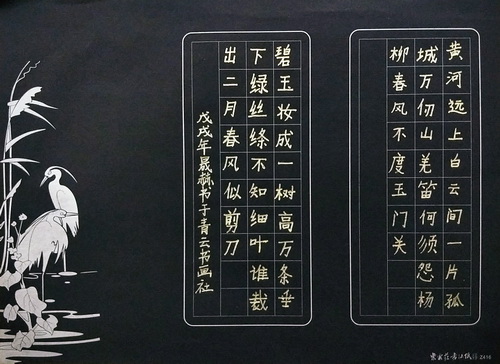 黄河远上白云间一片孤
城万仞山羌笛何须怨杨
柳春风不度玉门关
碧玉妆成一树高万条垂
下绿丝绦不知细叶堆裁
出二月春风似剪刀
戊戌年晟赫书于青云书画社